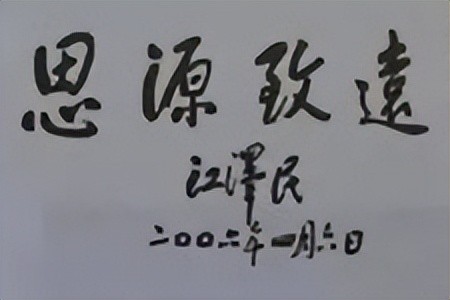 思源致遠
江澤民
二〇〇六年一月六日